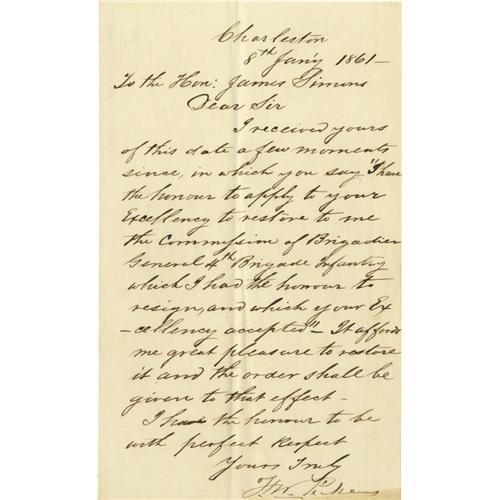 Charleston
8th Jan'y 1861 -
To the Hon: James Simons
Dear Sir
I received yours
of this date a few moments
since, in which you say "I have
the honour to apply to your
Excellency to restore to me
the Commission of Brigadier
General 4th Brigade Infantry
which I had the honour to
resign, and which your Ex
-cellency accepted" - It affords
me great pleasure to restore
it and the order shall be
given to that effect -
I have the honour to be
with perfect respect
Yours Truly
F. W. Pickens